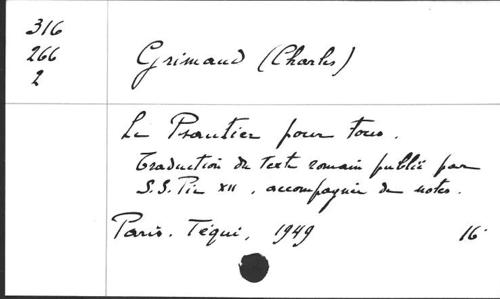 316
266
2
Grimaud (Charles)
Le Psautier pour tous.
Traduction du texte romain publié par
S.S. Pie XII, accompagnée de notes.
Paris. Téqui, 1949 16°